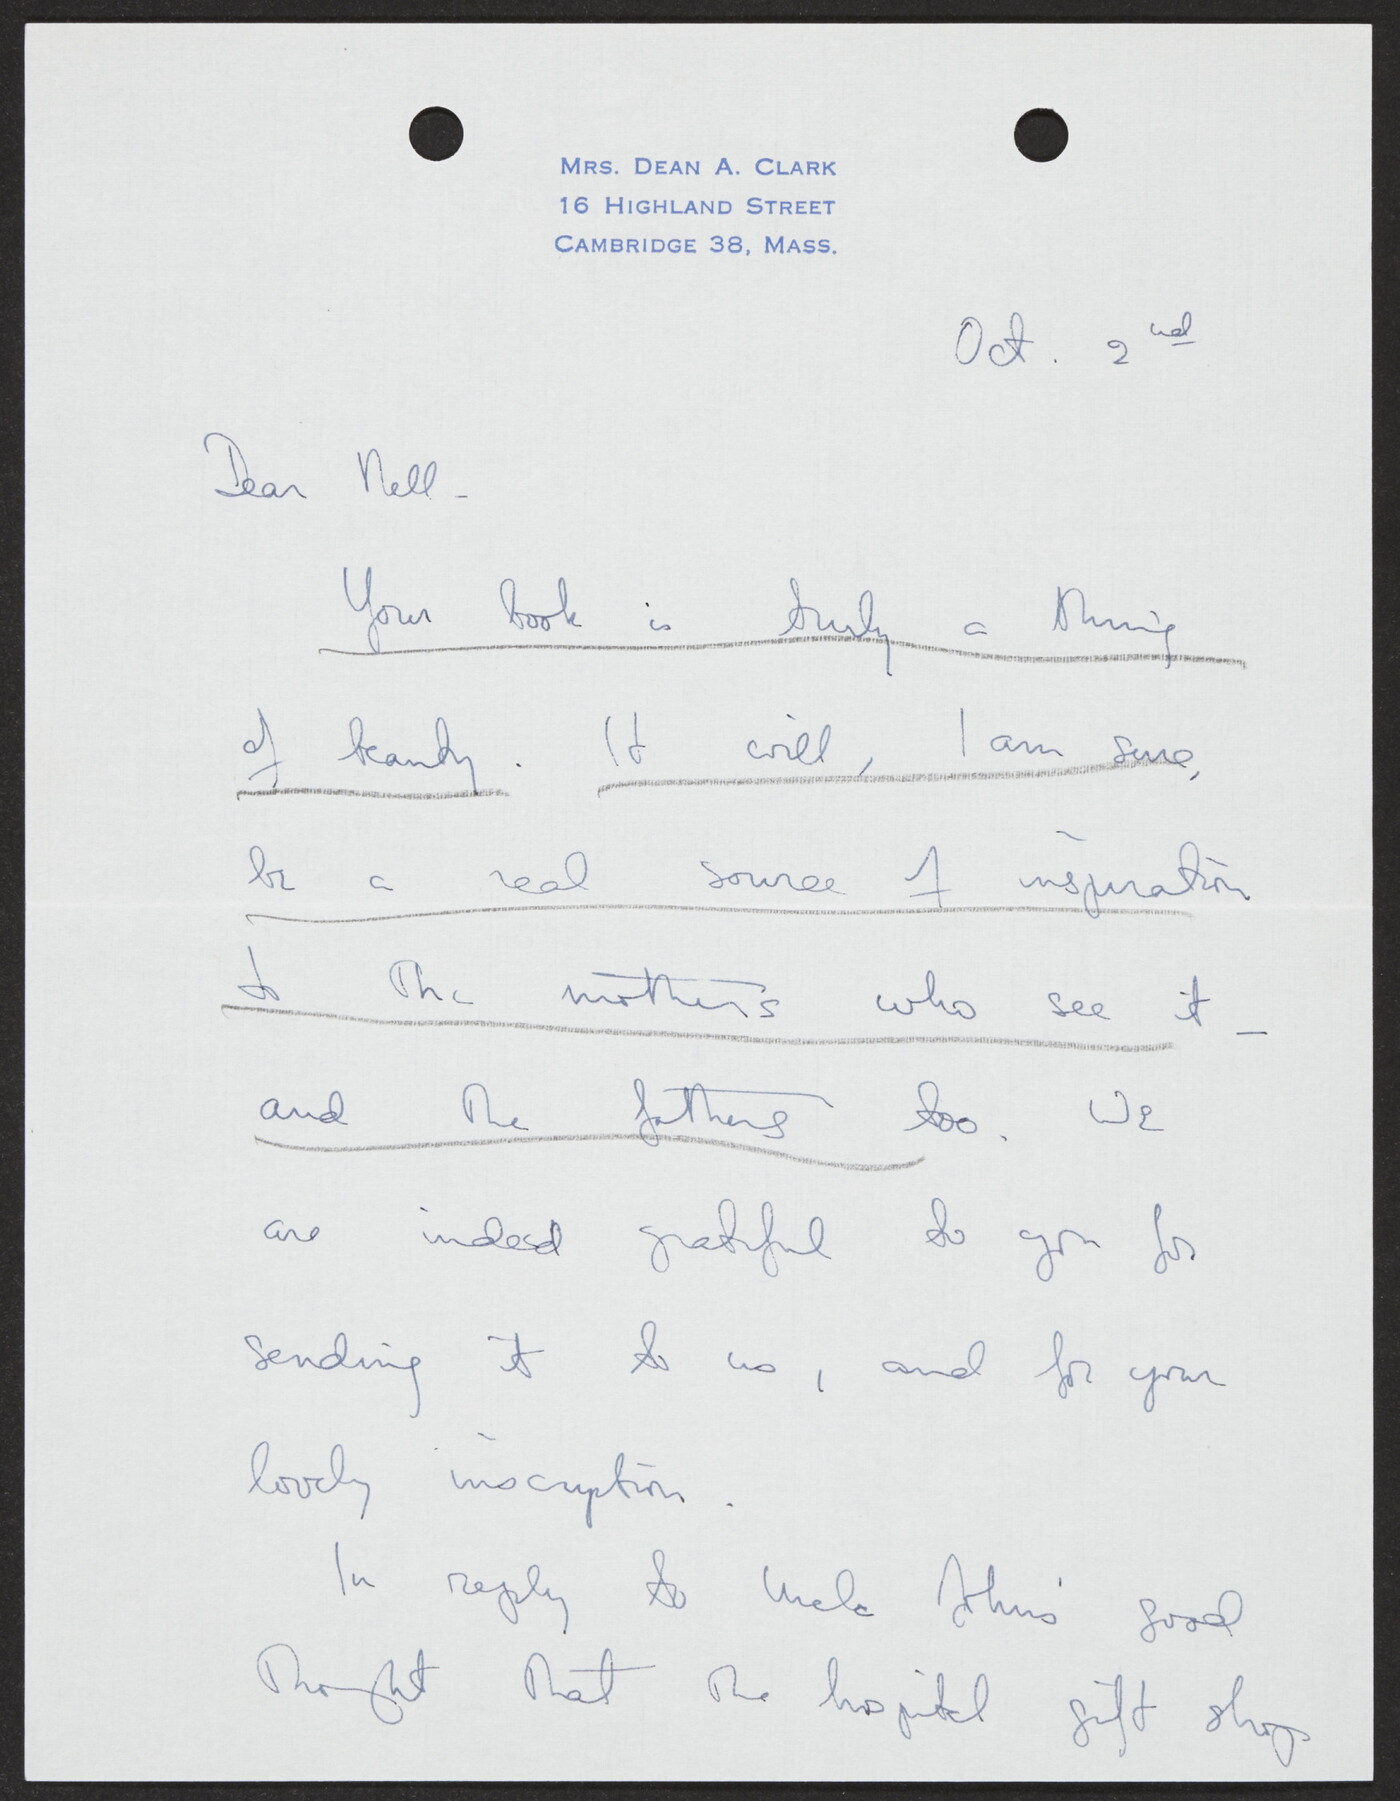 MRS. DEAN A. CLARK
16 HIGHLAND STREET
CAMBRIDGE 38, MASS.
Oct. 2nd
Dear Nell -
Your book is truly a thing
of beauty. It will, I am sure,
be a real source of inspiration
to the mothers who see it -
and the fathers too. We
are indeed grateful to you for
sending it to us, and for your
lovely inscription.
In reply to Uncle John's good
thought that the hospital gift shop